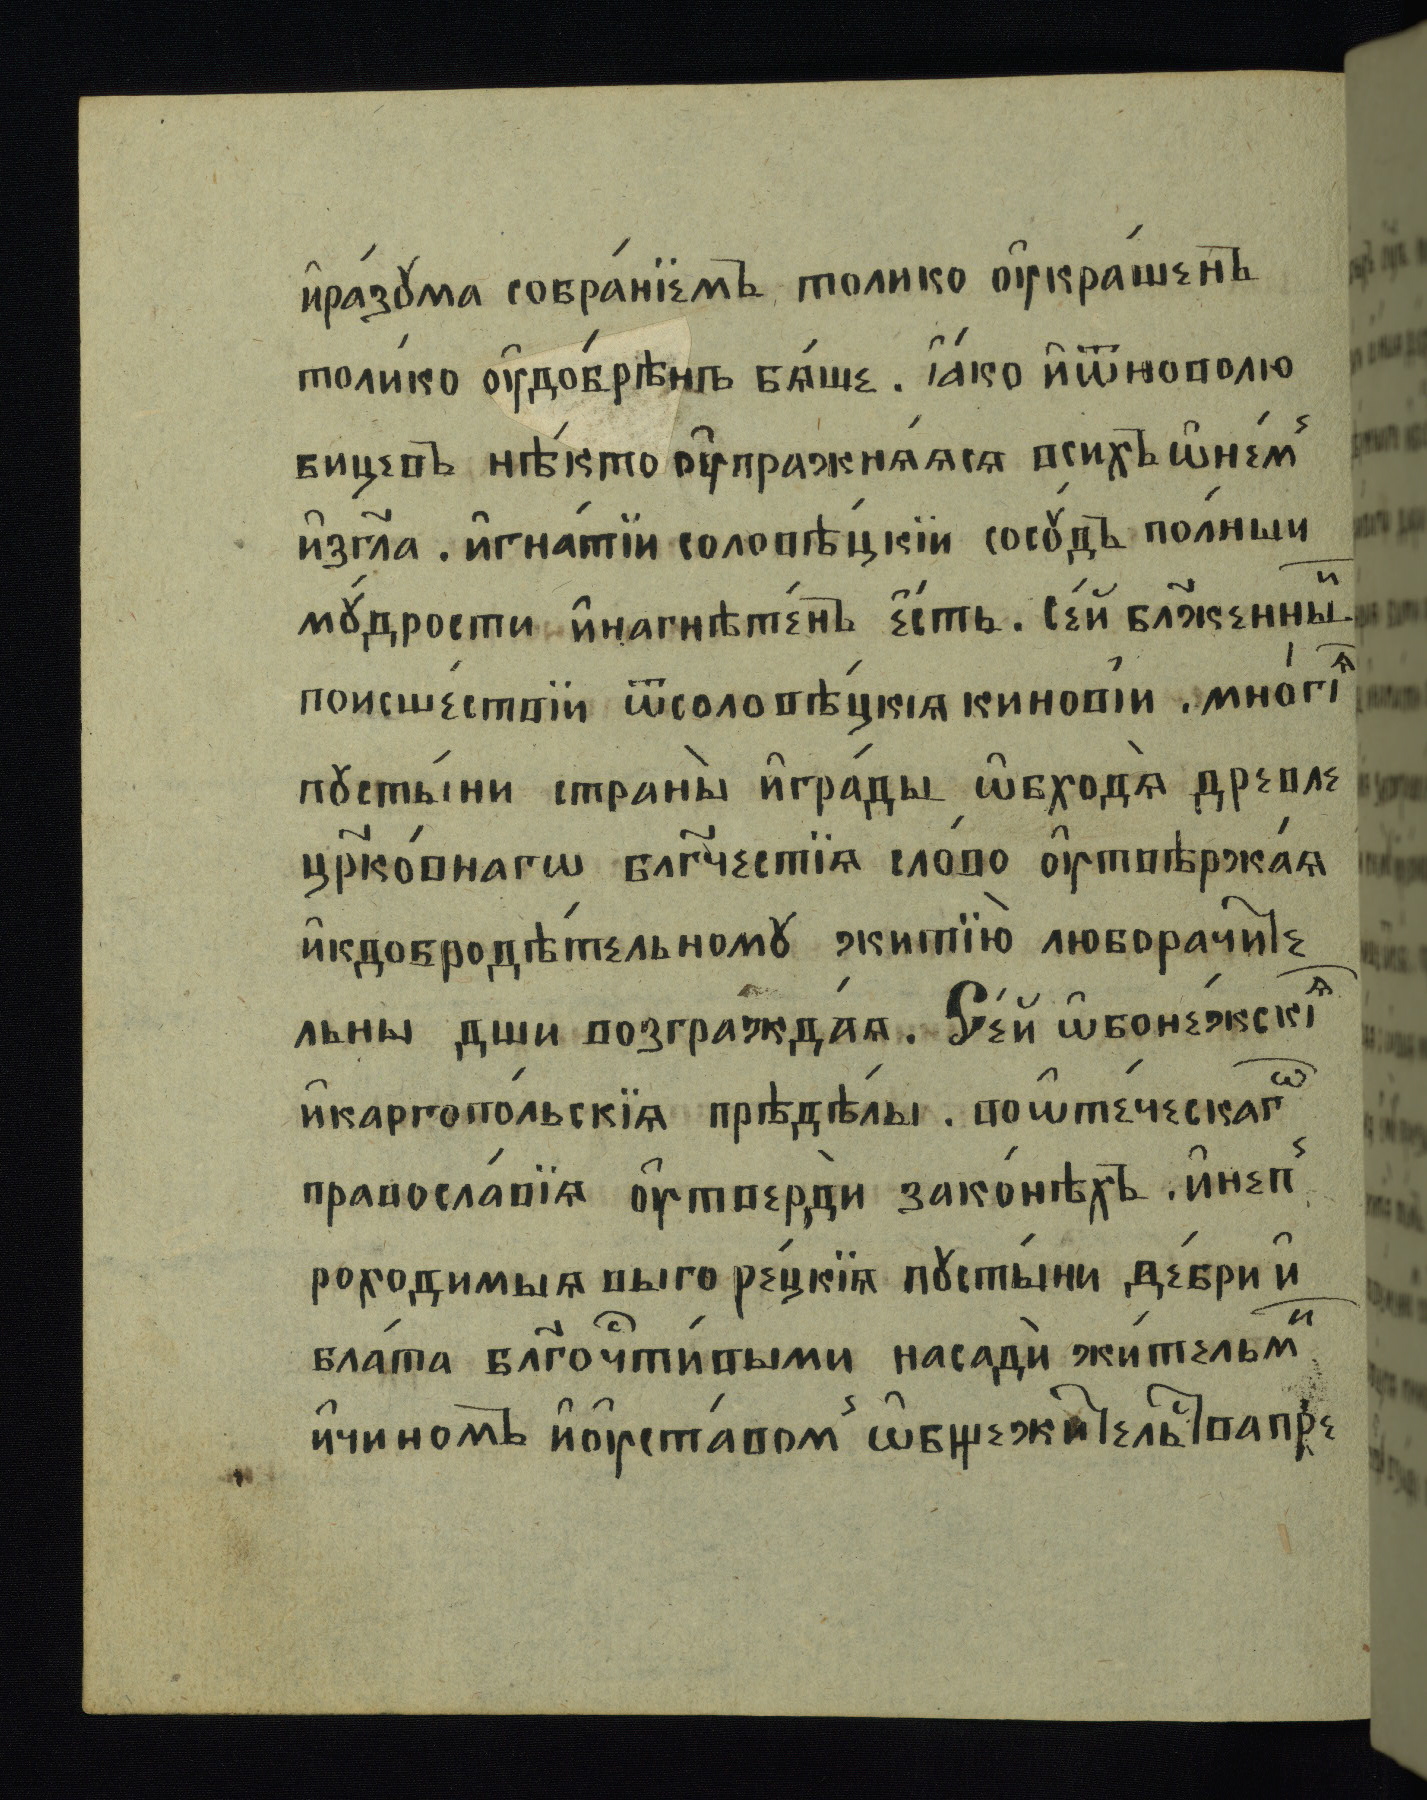 и҆ра́зꙋма собра́нїемъ толико ᲂу҆кра́шенъ
толи́ко ᲂу҆до́брѣнъ бѧ́ше . ꙗ҆́ко и҆ѿнополю
бицевъ нѣ́кто ᲂу҆пражнѧ́ѧсѧ всихъ ѡ҆не́м̾
и҆згл҃а . и҆гна́тїи соловѣ́цкїи сосꙋ́дъ по́лныи
мꙋ́дрости и҆нагнѣте́нъ є҆́сть . Се́й бл҃женныⷤ
поисше́ствїи ѿсоловѣ́цкїѧ кинові́и . мно́гїѧ
пꙋсты́ни страны̀ и҆гра́ды ѡ҆бходѧ̀ древле
цр҃ко́внагѡ бл҃гчестїѧ сло́во ᲂу҆твѣржа́ѧ
и҆кдобродѣ́тельномꙋ житїю̀ люборачите
льны дши возгражда́ѧ . Се́й ѡ҆боне́жскїѧ
и҆каргопо́льскїѧ прѣдѣ́лы . воѡ҆те́ческагѡ
правосла́вїѧ ᲂу҆тверди̏ зако́нѣхъ . и҆неп̾
роходимыѧ выго ре́цкїѧ пꙋсты́ни де́бри и҆
бла́та бл҃гочⷭ҇ти́выми насади̏ жи́тельми
и҆чиномъ и҆ᲂу҆ста́вом̾ ѡ҆бщежительⷭ҇тва пре